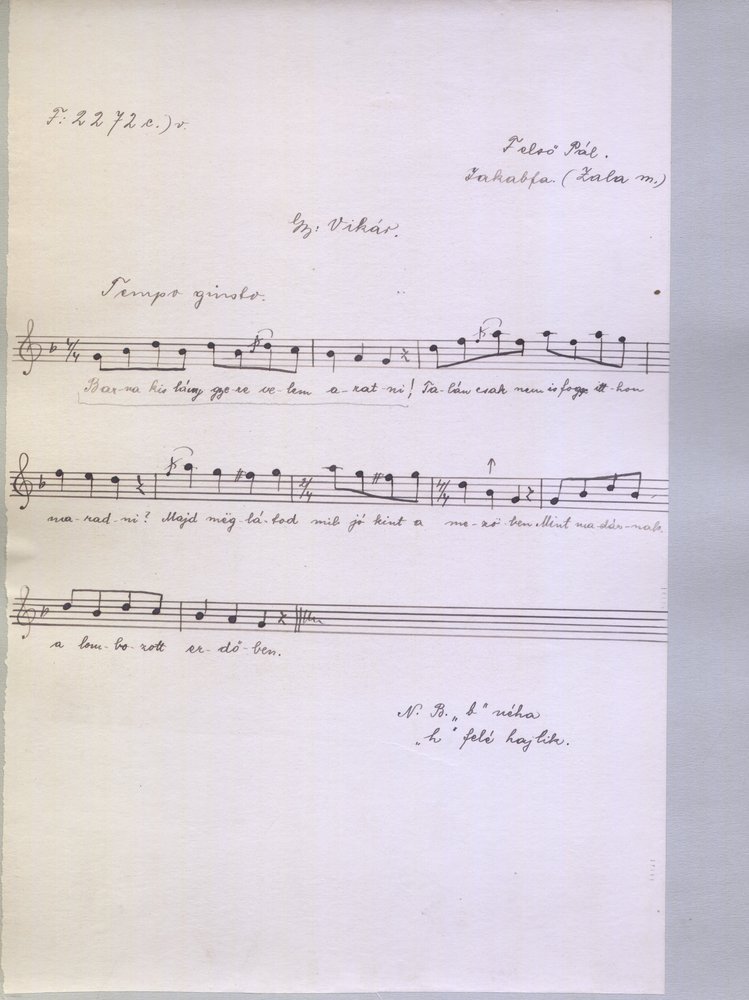 F: 2272 c.) v.
Felső Pál.
Jakabfa. (Zala m.)
Gy: Vikár.
Tempo giusto.
4/4
Bar-na kis lány gye-re ve-lem a-rat-ni! Ta-lán csak nem is fogsz itt-hon
2/4 4/4
ma-rad-ni? Majd mëg-lá-tod mily jó kint a me-ző-ben Mint ma-dár-nak
a lom-bo-zott er-dő-ben.
N. B. „b" néha
„h" felé hajlik.